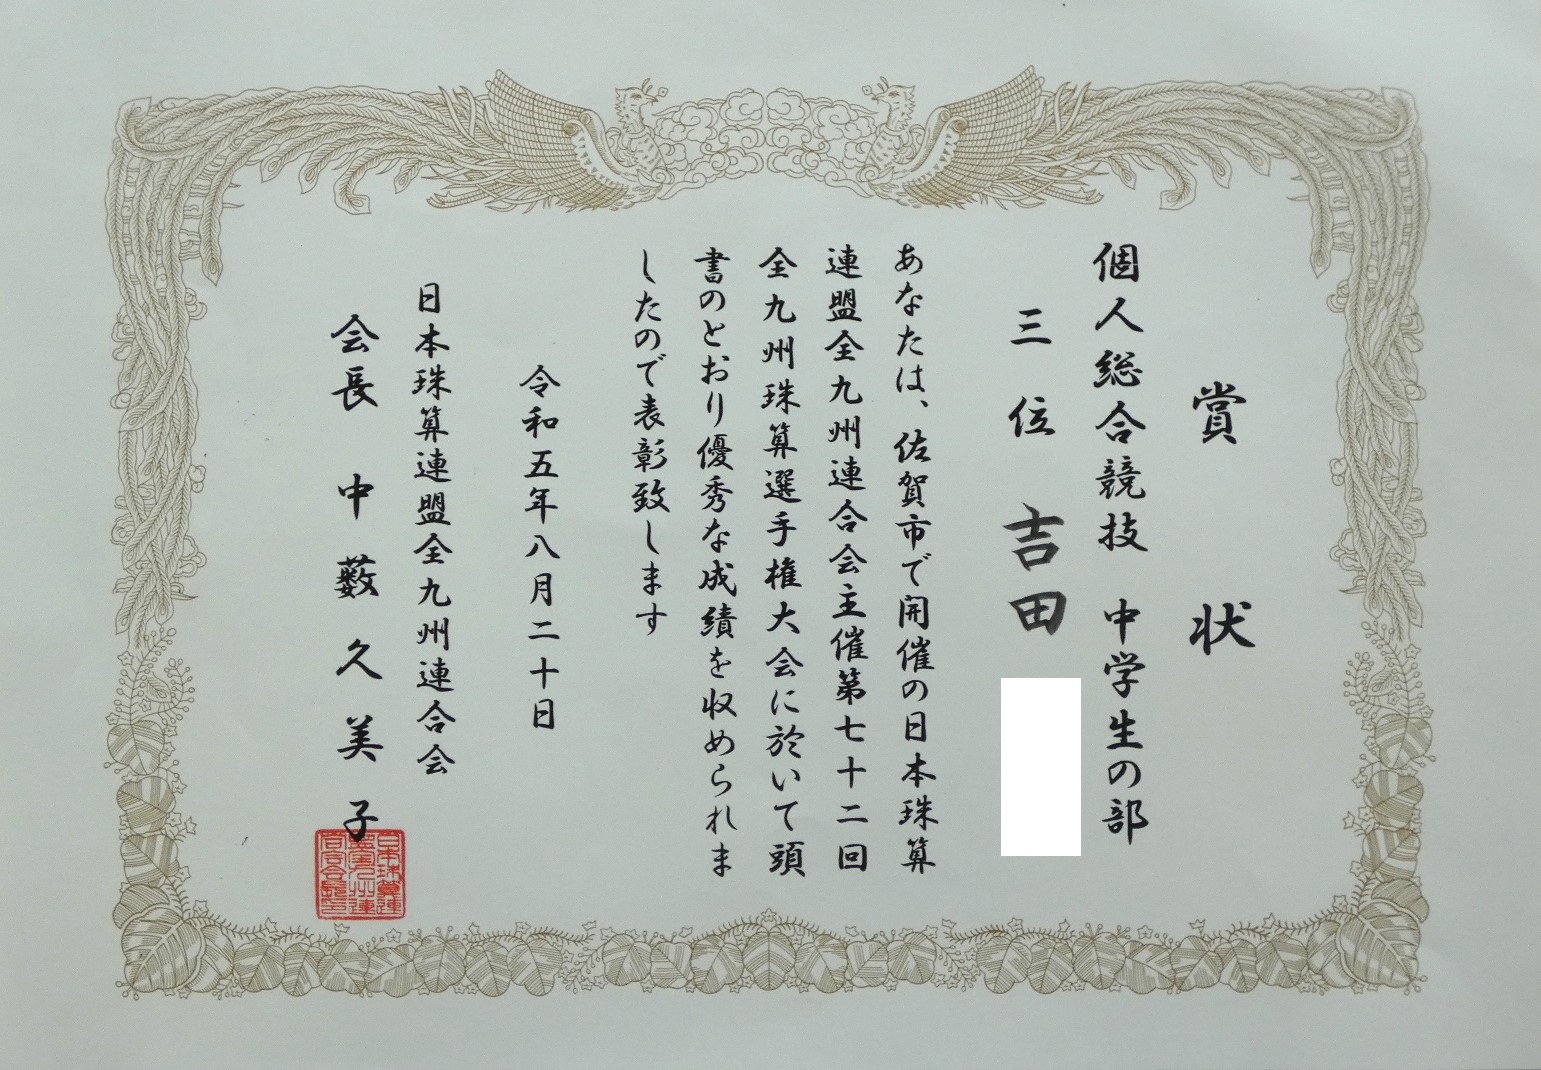 賞状
個人総合競技 中学生の部
三位 吉田
あなたは、佐賀市で開催の日本珠算
連盟全九州連合会主催第七十二回
全九州珠算選手権大会に於いて頭
書のとおり優秀な成績を収められま
したので表彰致します
令和五年八月二十日
日本珠算連盟全九州連合会
会長 中藪久美子